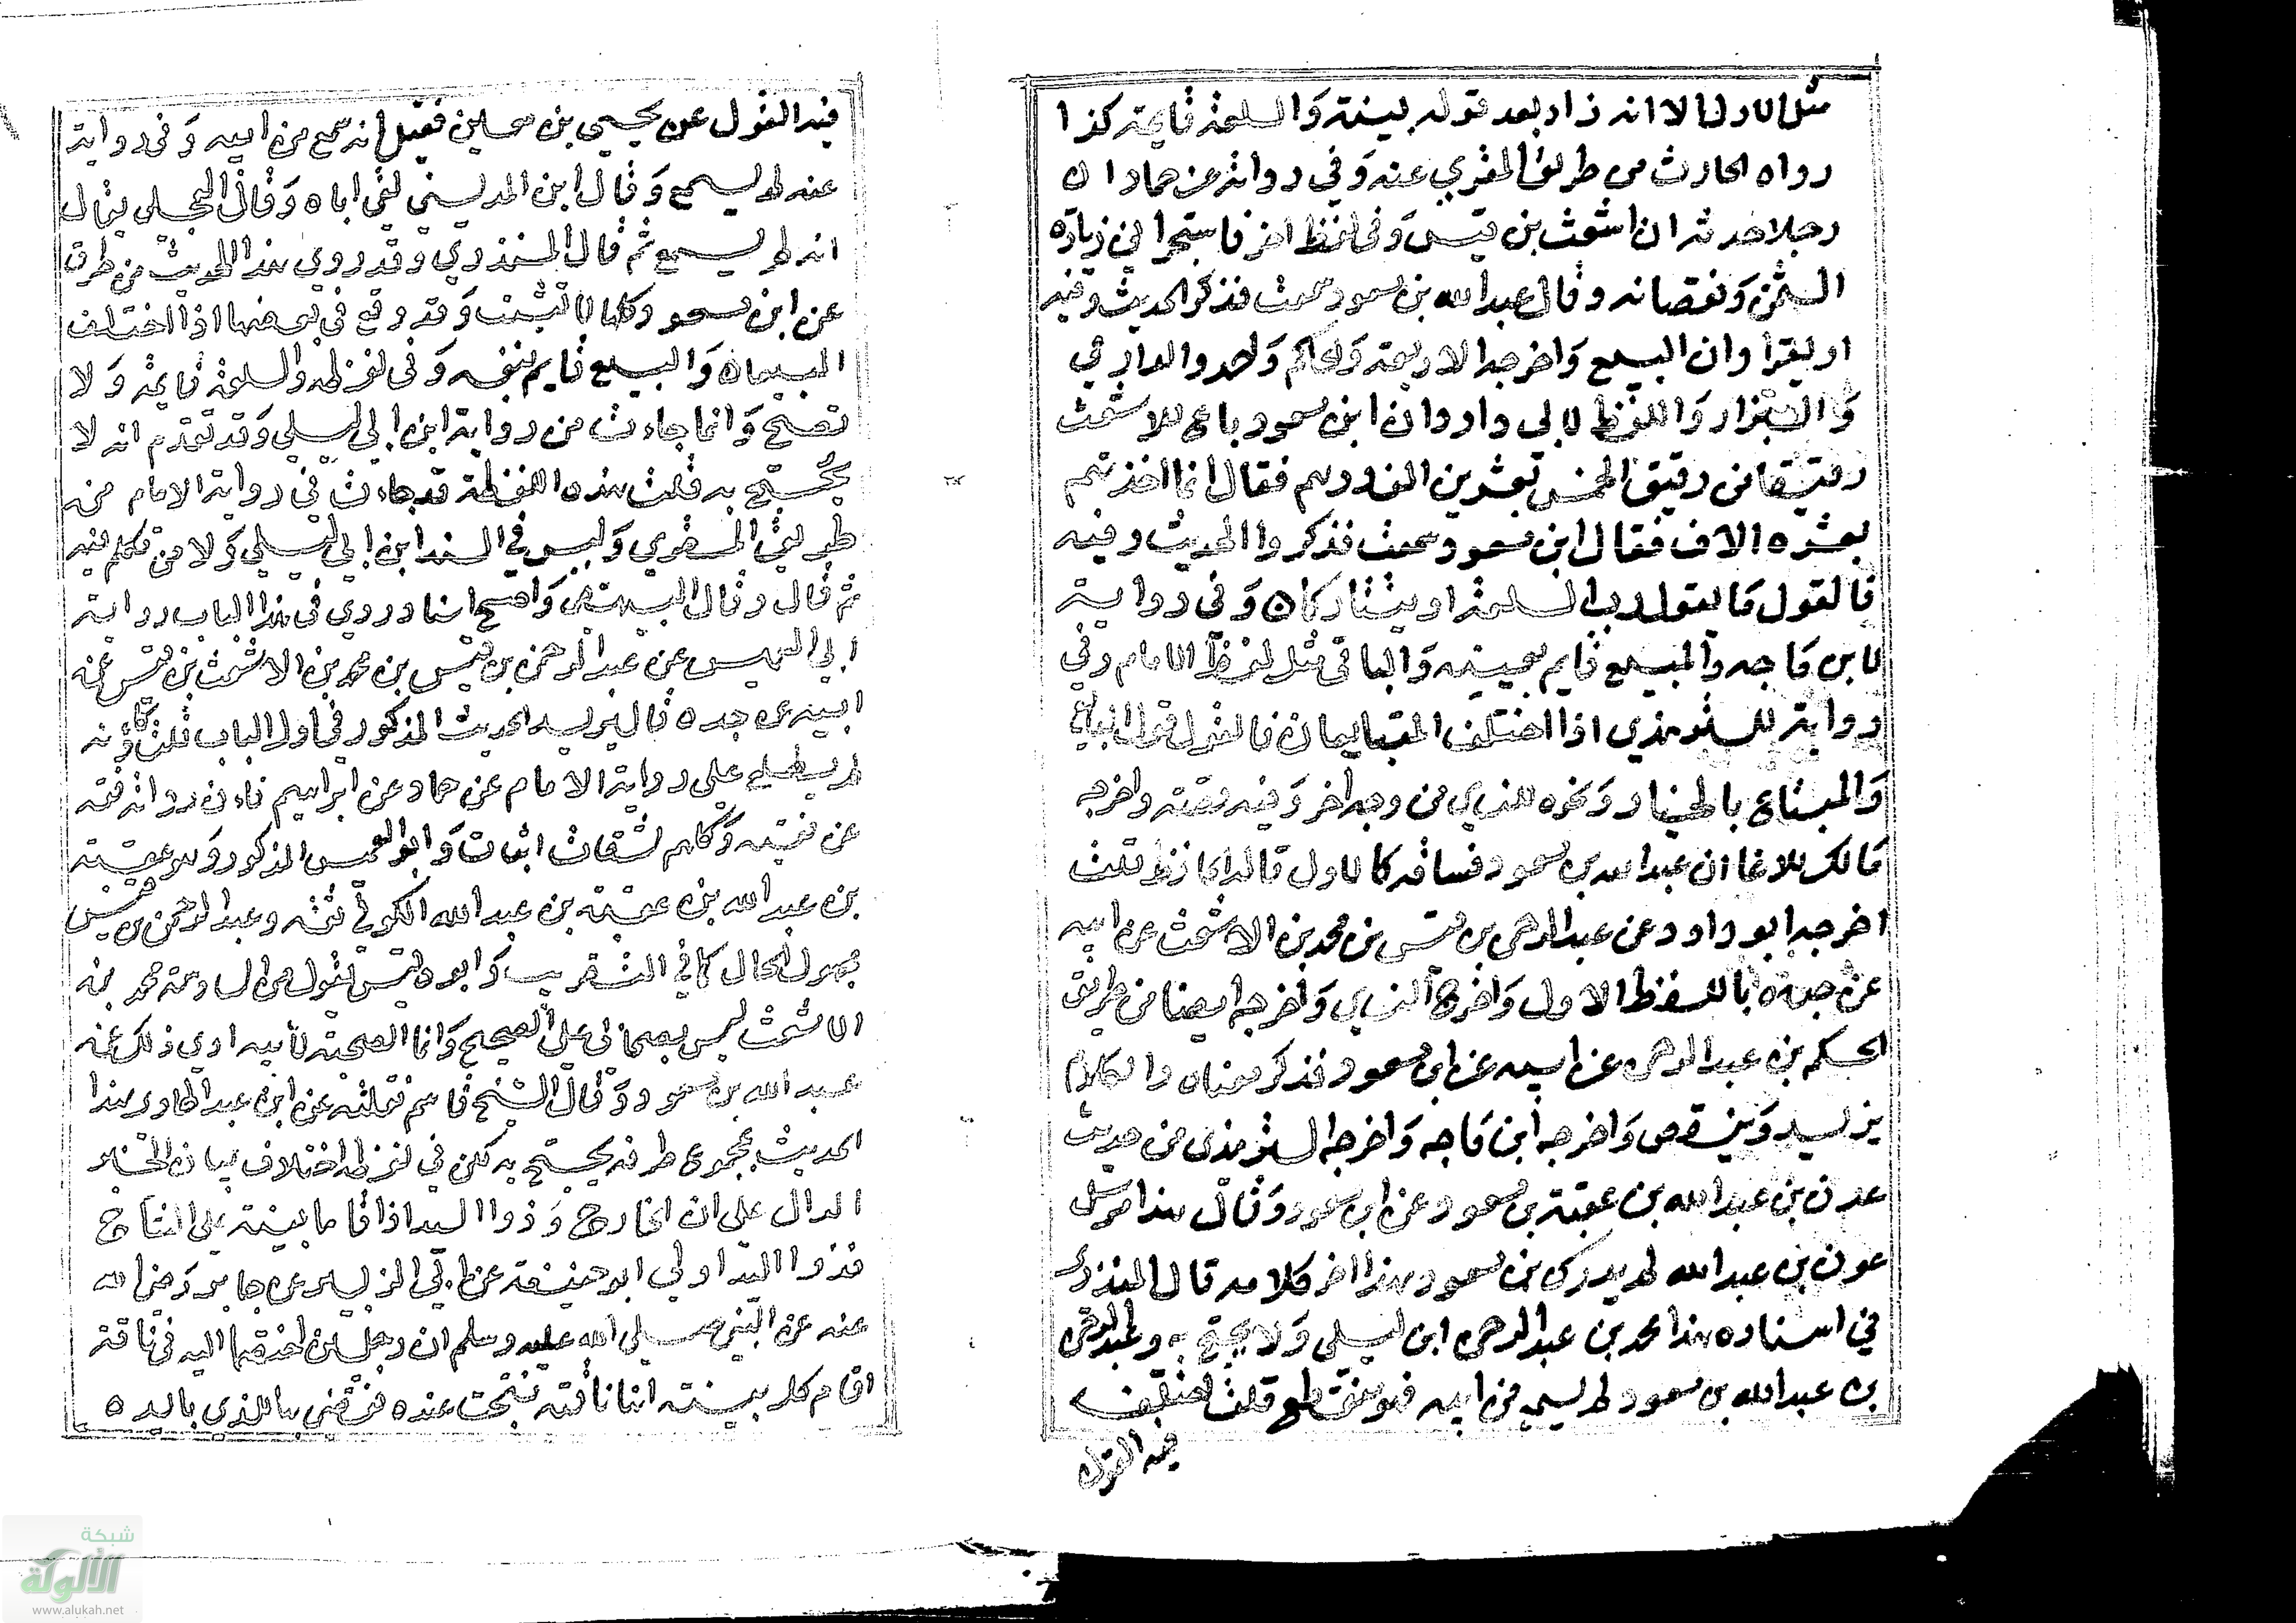 مثل الاول الا انه زاد بعد قوله بينة والسلعة قايمة كذا
رواه الحارث من طريق المقري عنه وفي رواية عن حماد ان
رجلا حدثه ان اشعث بن قيس وفي لفظ اخر في زيادة
الثمن ونقصانه وقال عبد الله بن مسعود سمعت فذكر الحديث وفيه
او البيع واخرجه الاربعة والحاكم واحمد والدارمي
والبزار واللفظ لابي داود ان ابن مسعود باع للاشعث
رقيقا من رقيق الخمس بعشرين الف درهم فقال انما اخذتهم
بعشره الاف فقال ابن مسعود سمعت فذكروا الحديث وفيه
فالقول ما يقول رب السلعة او يتتاركان وفي رواية
لابن ماجه والبيع قايم بعينه والباقي مثل لفظ الامام وفي
رواية للترمذي اذا اختلف المتبايعان فالقول قول البايع
والمبتاع بالخيار ونحوه للنسايي من وجه اخر وفيه قصة واخرجه
مالك بلاغا ان عبد الله بن مسعود فساقه كالاول قال الحافظ قلت
اخرجه ابو داود عن عبد الرحمن بن قيس بن محمد بن الاشعث عن ابيه
عن جده باللفظ الاول واخرج النسايي واخرجه ايضا من طريق
الحكم بن عبد الرحمن عن ابيه عن ابن مسعود فذكر معناه والكلام
يزيد وينقص واخرجه ابن ماجه واخرجه الترمذي من حديث
عون بن عبد الله بن عتبة بن مسعود عن ابن مسعود وقال هذا مرسل
عون بن عبد الله لم يدرك بن مسعود هذا اخر كلامه قال المنذري
في اسناده هذا محمد بن عبد الرحمن ابن ليلى ولا يحتج به وعبد الرحمن
بن عبد الله بن مسعود لم يسمع من ابيه فهو منقطع قلت اختلف
فيه القول
فيه القول عن يحيى بن معين فقيل انه سمع من ابيه وفي رواية
عنه لم يسمع وقال ابن المديني لقي اباه وقال العجلي يقال
انه لم يسمع ثم قال المنذري وقد روي هذا الحديث من طرق
عن ابن مسعود وكلها لا تثبت وقد وقع في بعضها اذا اختلف
البيعان والبيع قايم بعينه وفي لفظه والسلعة قايمة ولا
تصح وانما جاءت من رواية ابن ابي ليلى وقد تقدم انه لا
يحتج به قلت هذه اللفظة قد جاءت في رواية الامام من
طريق المقري وليس في السند ابن ابي ليلى ولا من تكلم فيه
ثم قال وقال البيهقي واصح اسناد روي في هذا الباب رواية
ابي العميس عن عبد الرحمن بن قيس بن محمد بن الاشعث بن قيس عن
ابيه عن جده قال يريد الحديث المذكور في اول الباب قلت
لم يطلع على رواية الامام عن حماد عن ابراهيم فان رواته فقيه
عن فقيه وكلهم ثقات اثبات وابو العميس المذكور وهو عتبة
بن عبد الله بن عتبة بن عبد الله الكوفي ثقة وعبد الرحمن بن قيس
مجهول الحال كما في التقريب وابوه قيس مقبول من ومحمد بن
الاشعث ليس بصحابي على الصحيح وانما الصحبة لابيه
عبد الله بن مسعود وقال الشيخ قاسم نقلته عن ابن عبد الهادي هذا
الحديث بمجموع طرقه يحتج به لكن في لفظه اختلاف بيان الخبر
الدال على ان الخارج وذوا اليد اذا اقاما بينة على النتاج
فذوا اليد اولى ابو حنيفة عن ابي الزبير عن جابر رضي الله
عنه عن النبي صلى الله عليه وسلم ان رجلين اختصما اليه في ناقة
اقام كل بينة انها ناقته نتجت عنده فقضى بها للذي بايده
شبكة
الألوكة
www.alukah.net